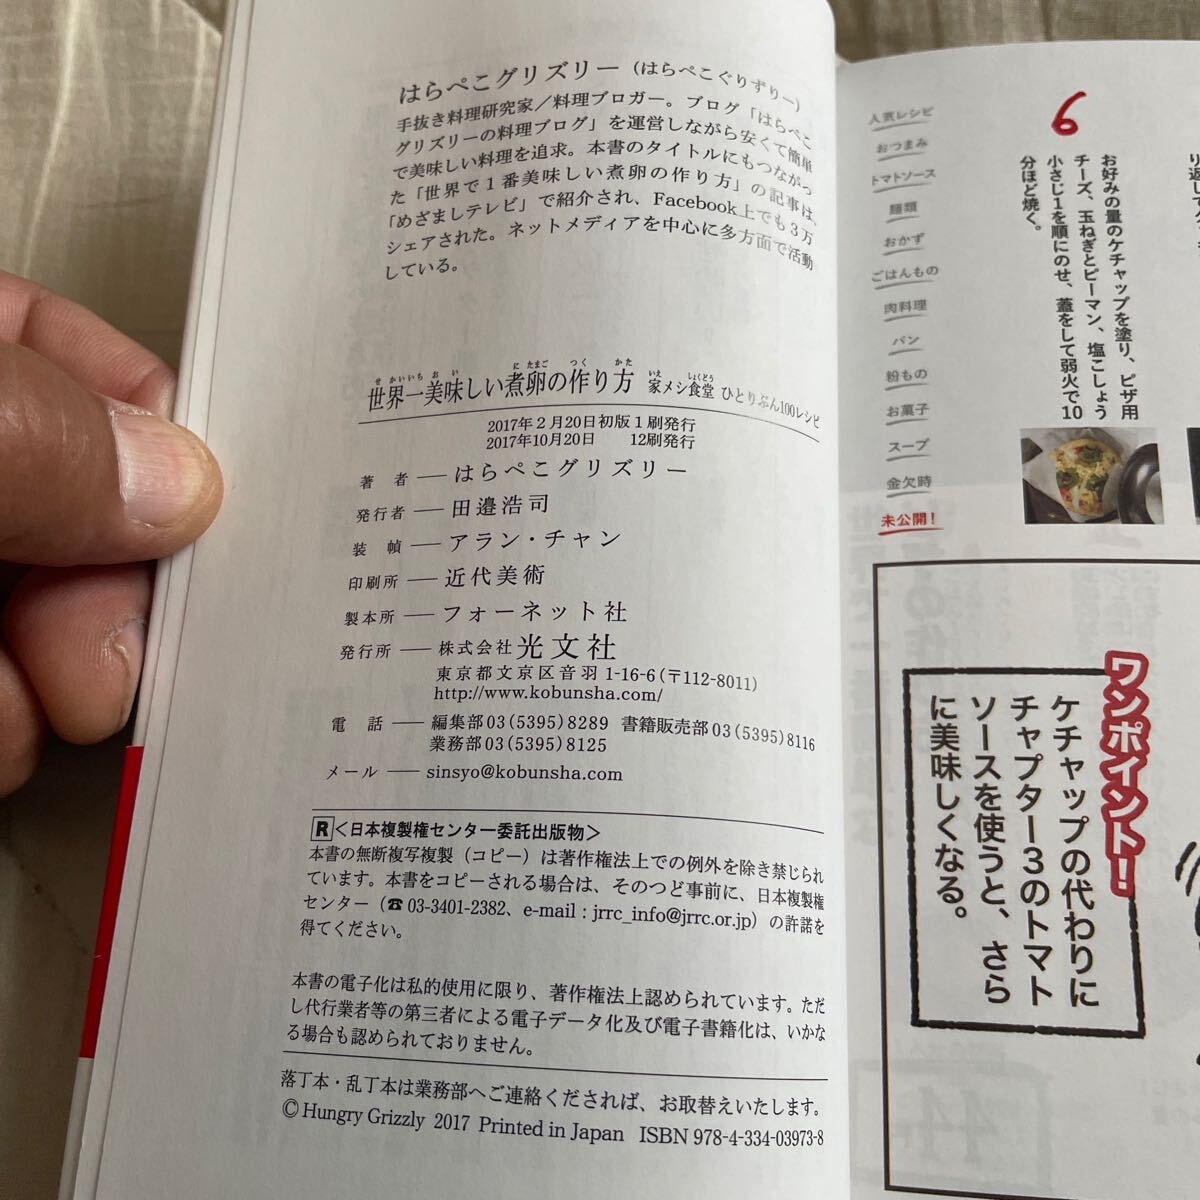 はらぺこグリズリー（はらぺこぐりずりー）
手抜き料理研究家／料理ブロガー。ブログ「はらぺこ
グリズリーの料理ブログ」を運営しながら安くて簡単
で美味しい料理を追求。本書のタイトルにもつながっ
た「世界で1番美味しい煮卵の作り方」の記事は、
「めざましテレビ」で紹介され、Facebook上でも3万
シェアされた。ネットメディアを中心に多方面で活動
している。
せかいいちおい にたまご つく かた いえ しょくどう
世界一美味しい煮卵の作り方 家メシ食堂 ひとりぶん100レシピ
2017年2月20日初版1刷発行
2017年10月20日 12刷発行
著 者 ── はらぺこグリズリー
発行者 ── 田邉浩司
装 幀 ── アラン・チャン
印刷所 ── 近代美術
製本所 ── フォーネット社
発行所 ── 株式会社 光文社
東京都文京区音羽1-16-6(〒112-8011)
http://www.kobunsha.com/
電 話 ── 編集部03(5395)8289 書籍販売部03(5395)8116
業務部03(5395)8125
メール ── sinsyo@kobunsha.com
R＜日本複製権センター委託出版物＞
本書の無断複写複製（コピー）は著作権法上での例外を除き禁じられ
ています。本書をコピーされる場合は、そのつど事前に、日本複製権
センター（☎03-3401-2382、e-mail : jrrc_info@jrrc.or.jp）の許諾を
得てください。
本書の電子化は私的使用に限り、著作権法上認められています。ただ
し代行業者等の第三者による電子データ化及び電子書籍化は、いかな
る場合も認められておりません。
落丁本・乱丁本は業務部へご連絡くだされば、お取替えいたします。
© Hungry Grizzly 2017 Printed in Japan ISBN 978-4-334-03973-8
人気レシピ
おつまみ
トマトソース
麺類
おかず
ごはんもの
肉料理
パン
粉もの
お菓子
スープ
金欠時
未公開！
6
お好みの量のケチャップを塗り、ピザ用
チーズ、玉ねぎとピーマン、塩こしょう
小さじ1を順にのせ、蓋をして弱火で10
分ほど焼く。
ワンポイント！
ケチャップの代わりに
チャプター3のトマト
ソースを使うと、さら
に美味しくなる。